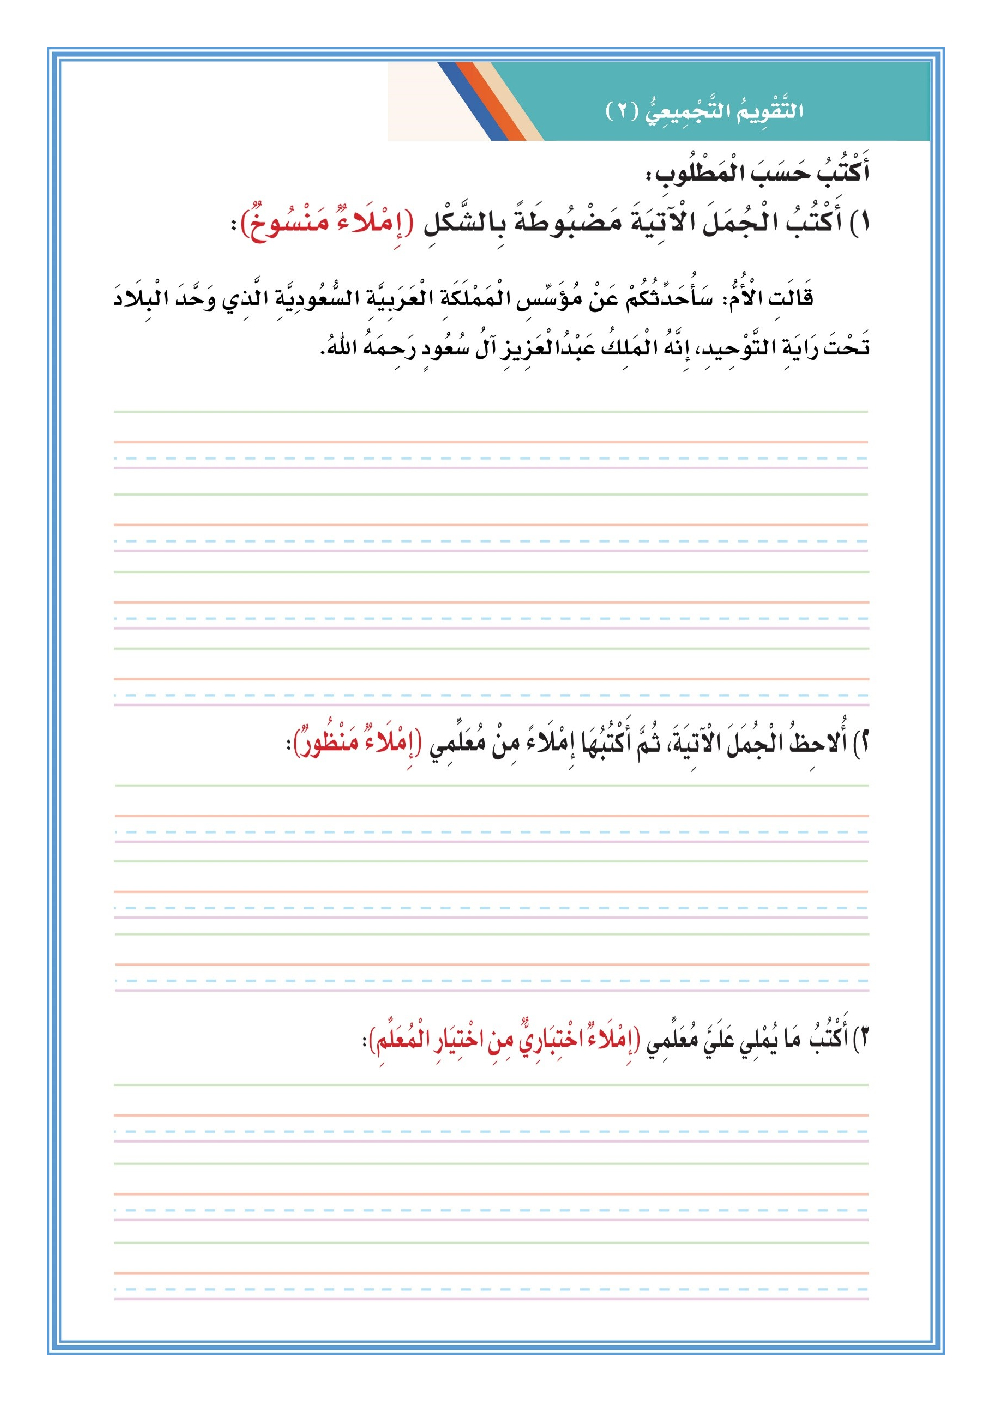 التَّقْوِيمُ التَّجْمِيعِيُّ (٢)
أَكْتُبُ حَسَبَ الْمَطْلُوبِ:
١) أَكْتُبُ الْجُمَلَ الْآتِيَةَ مَضْبُوطَةً بِالشَّكْلِ (إِمْلَاءٌ مَنْسُوخٌ):
قَالَتِ الْأُمُّ: سَأُحَدِّثُكُمْ عَنْ مُؤَسِّسِ الْمَمْلَكَةِ الْعَرَبِيَّةِ السُّعُودِيَّةِ الَّذِي وَحَّدَ الْبِلَادَ
تَحْتَ رَايَةِ التَّوْحِيدِ، إِنَّهُ الْمَلِكُ عَبْدُالْعَزِيزِ آلُ سُعُودٍ رَحِمَهُ اللهُ.
٢) أُلاحِظُ الْجُمَلَ الْآتِيَةَ، ثُمَّ أَكْتُبُهَا إِمْلَاءً مِنْ مُعَلِّمِي (إِمْلَاءٌ مَنْظُورٌ):
٣) أَكْتُبُ مَا يُمْلِي عَلَيَّ مُعَلِّمِي (إِمْلَاءٌ اخْتِبَارِيٌّ مِنِ اخْتِيَارِ الْمُعَلِّمِ):